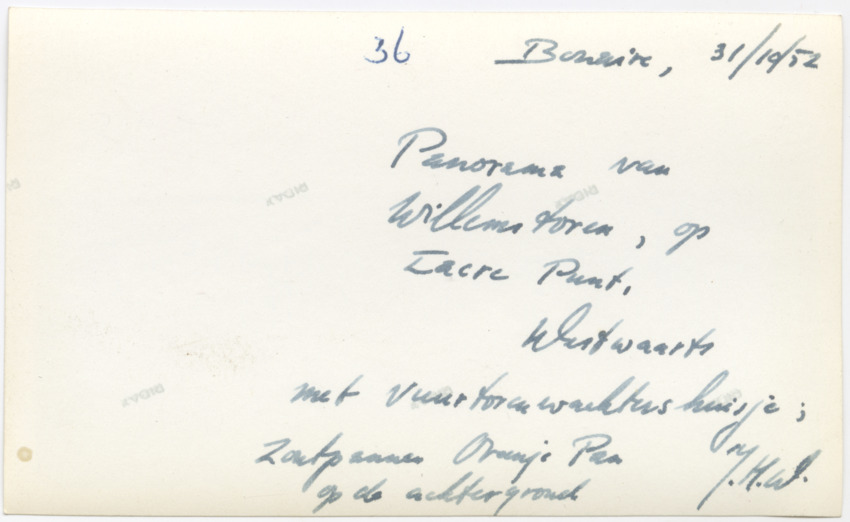 36
Bonaire, 31/10/52
Panorama van
Willemstoren, op
Lacre Punt,
Westwaarts
met vuurtorenwachtershuisje;
Zoutpannen Oranje Pan
op de achtergrond
RIDAX
RIDAX
RIDAX